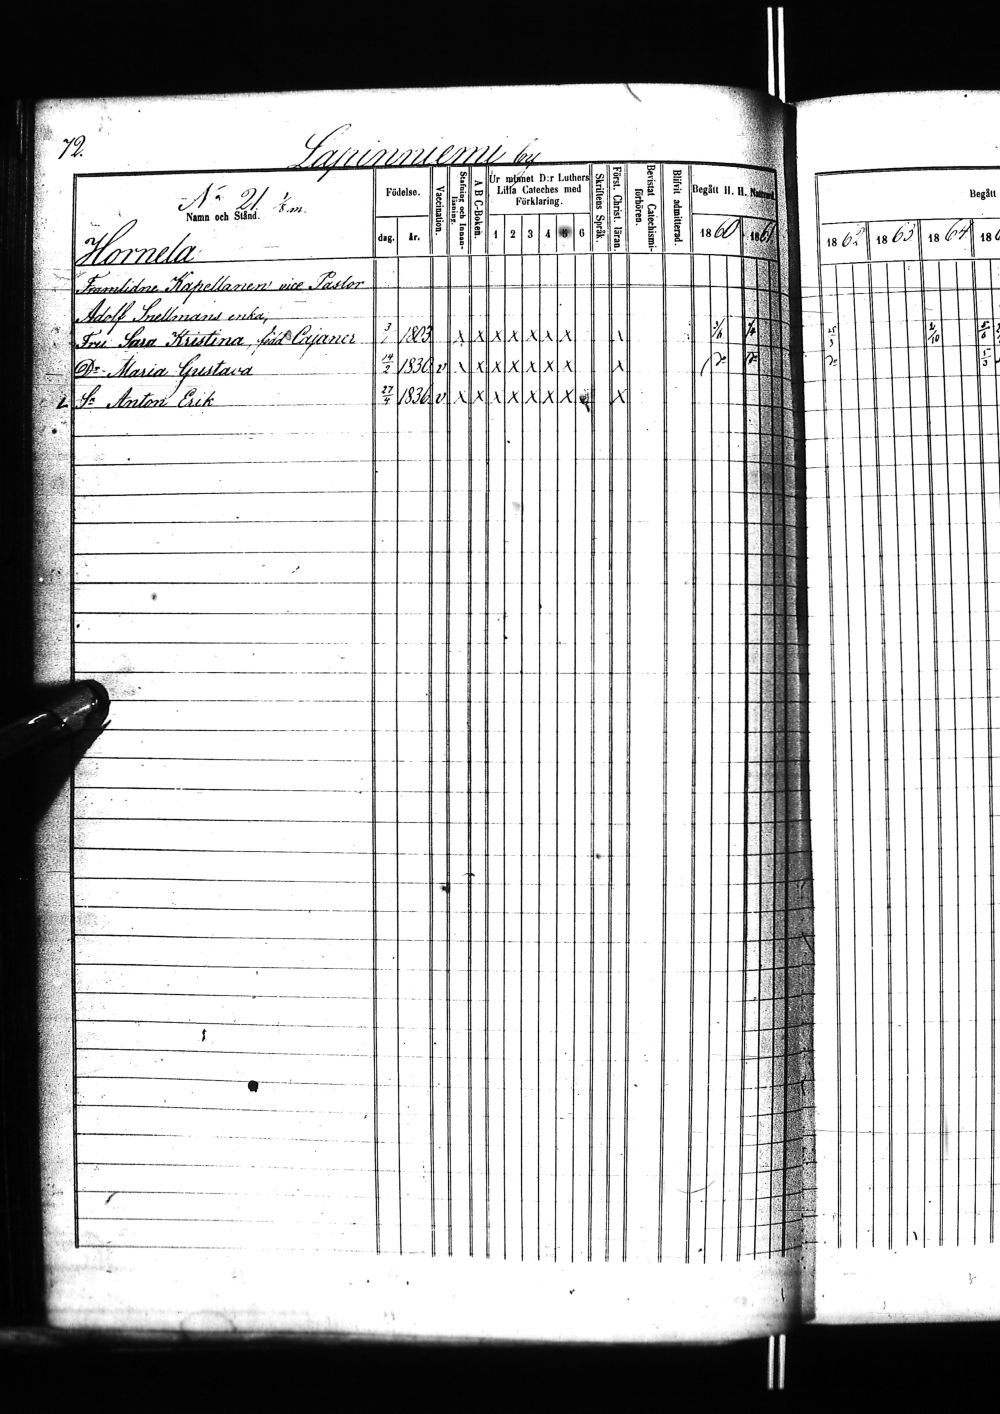 72.
Lapinniemi by
No 21 1/8 m.
Namn och Stånd.
Födelse.
dag. år.
Vaccination.
Stafning och Innan-läsning.
A B C-Boken.
Ur minnet D:r Luthers Lilla Cateches med Förklaring.
1 2 3 4 5 6
Skriftens Språk.
Först. Christ. läran.
Bevistat Catechismi-förhören.
Blifvit admitterad.
Begått H. H. Nattvard
1860 1861
Begått
1862 1863 1864 186
Hornela
Framlidne Kapellanen vice Pastor
Adolf Snellmans enka,
Fru Sara Kristina, född Cajaner 3/1 1803 x x x x x x x x
Dr Maria Gustava 14/2 1830 v x x x x x x x x
Sn Anton Erik 27/4 1836 v x x x x x x x x